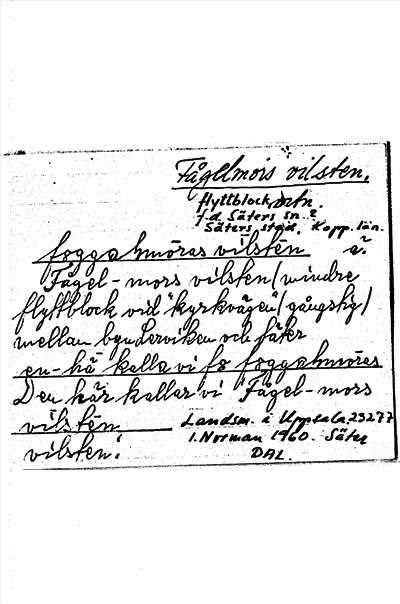 Fågelmors vilsten,
flyttblock, ortn.
f.d. Säters sn. ?
Säters stad, Kopp. län.
foggalmöras vilstēn
Fågel-mors vilsten (mindre
flyttblock vid "kyrkvägen" (gångstig)
mellan byn Lerviken och Säter
en-hä kalla vi fo foggalmöras
Den här kallar vi Fågel-mors
vilstēn
vilsten!
Landsm. i Uppsala. 23277
I. Norman 1960. Säter
DAL.